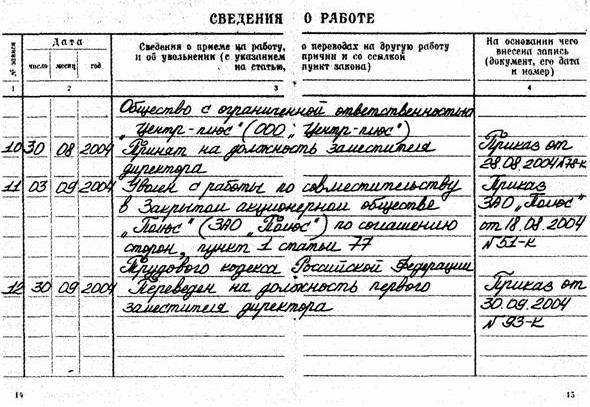 СВЕДЕНИЯ О РАБОТЕ
№ записи
Дата
число месяц год
Сведения о приеме на работу, о переводах на другую работу
и об увольнении (с указанием причин и со ссылкой
на статью, пункт закона)
На основании чего
внесена запись
(документ, его дата
и номер)
1 2 3 4
Общество с ограниченной ответственностью
„Центр-плюс" (ООО „Центр-плюс")
10 30 08 2004 Принят на должность заместителя Приказ от
директора 28.08.2004 №78-к
11 03 09 2004 Уволен с работы по совместительству Приказ
в Закрытом акционерном обществе ЗАО „Полюс"
„Полюс" (ЗАО „Полюс") по соглашению от 18.08.2004
сторон, пункт 1 статьи 77 N 51-к
Трудового кодекса Российской Федерации
12 30 09 2004 Переведен на должность первого Приказ от
заместителя директора 30.09.2004
N 93-к
14 15